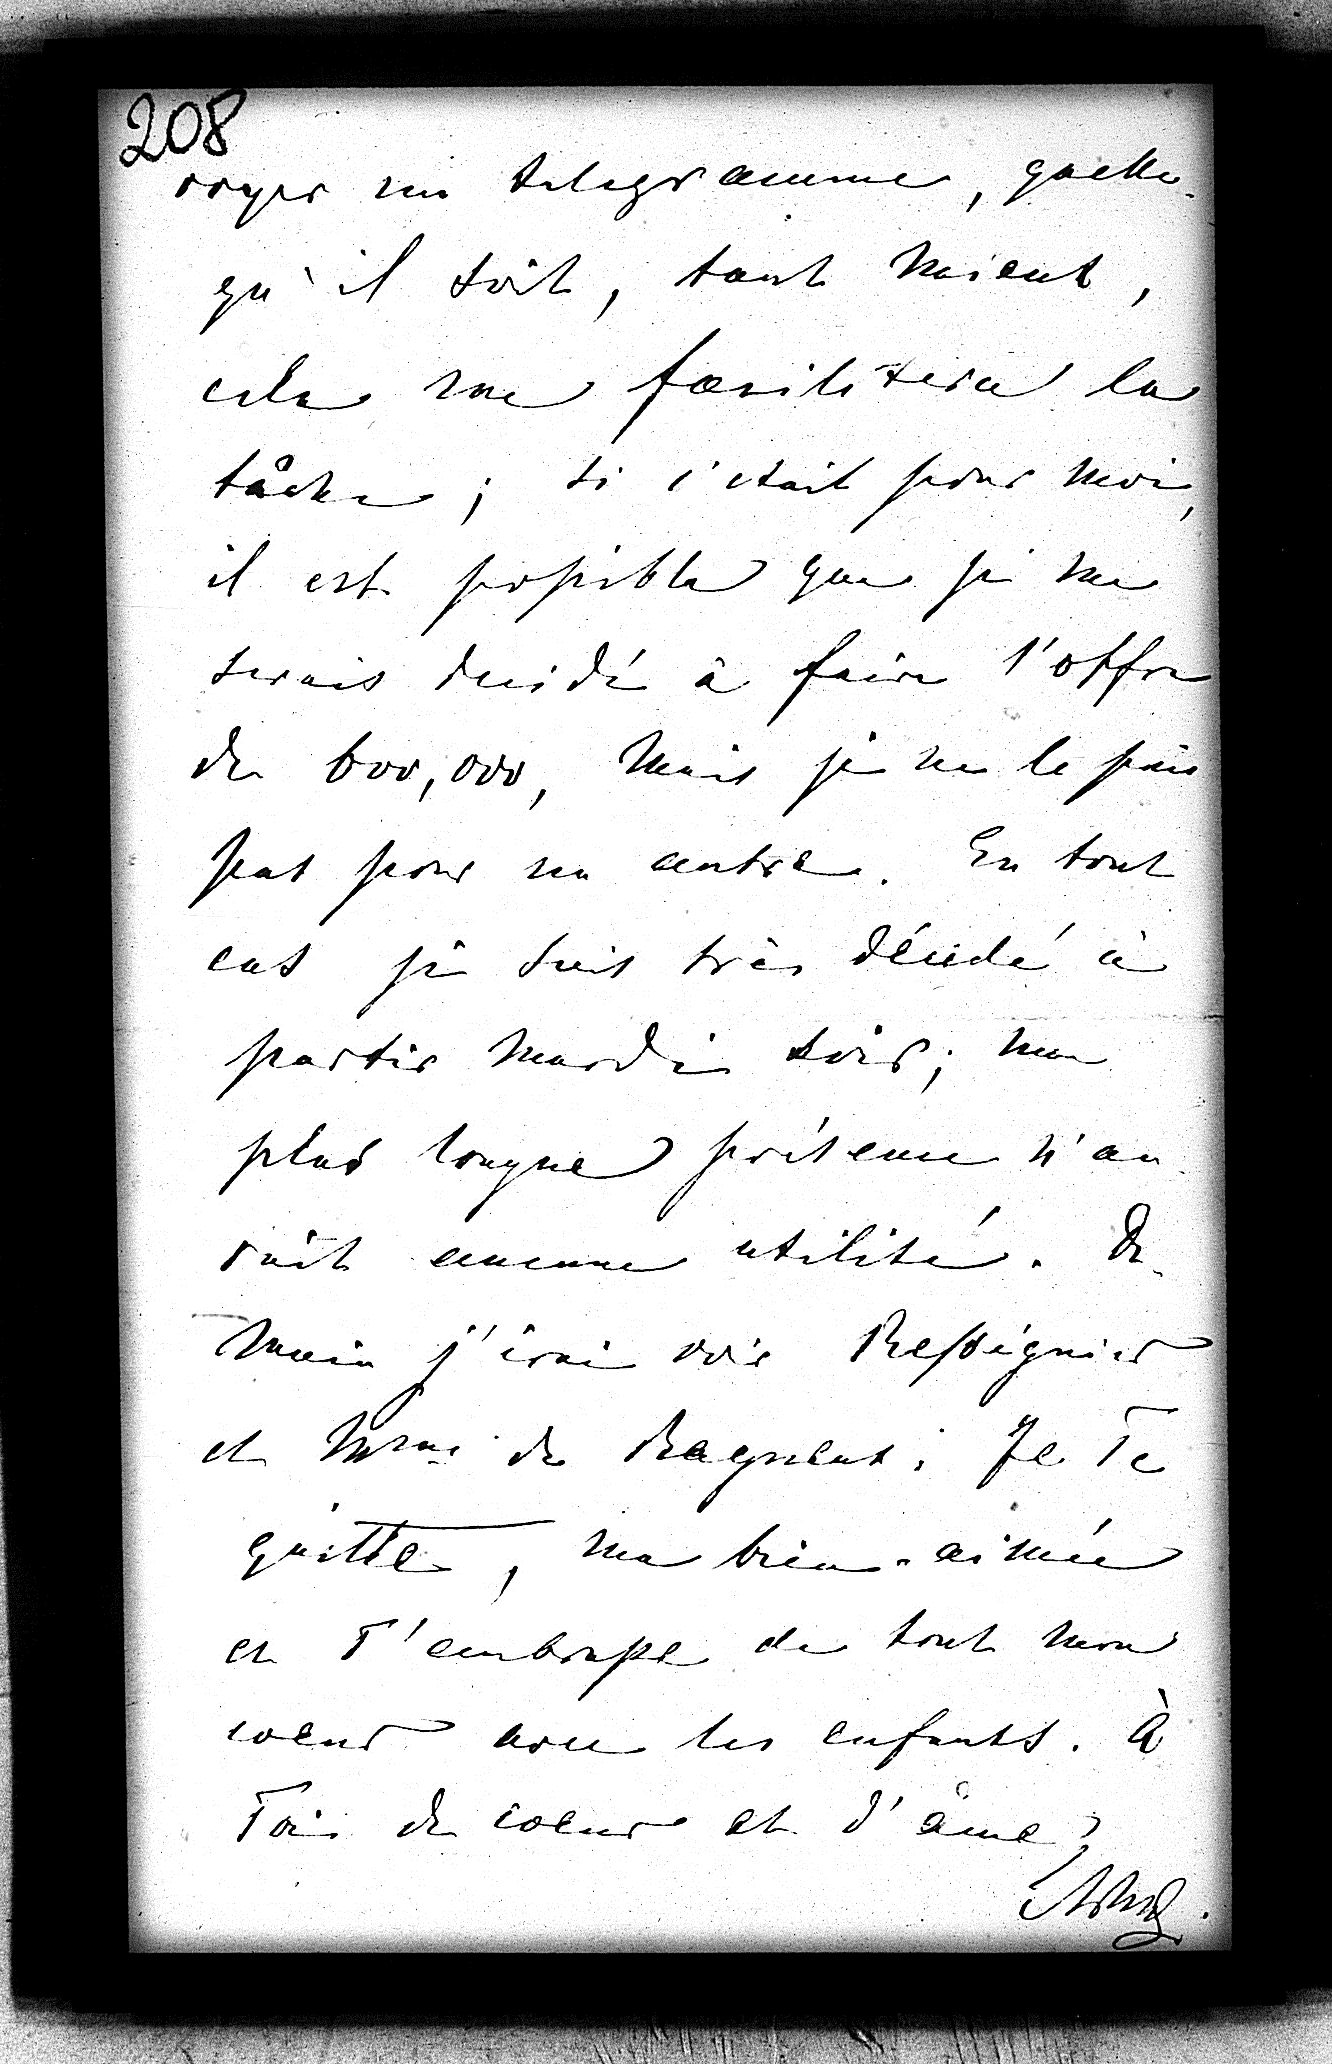 208
voyer un telegramme, quelle
qu'il soit, tant mieux,
cela me facilitera la
tâche; si c'etait pour moi,
il est possible que je me
serais decidé à faire l'offre
de 600,000, mais je ne le puis
pas pour un autre. En tout
cas je suis très décidé à
partir mardi soir; ma
plus longue présence n'au
rait aucune utilité. De-
main j'irai voir Rességuier
et Mme de Ragneux; Je Te
quitte, ma bien-aimée
et T'embrasse de tout mon
coeur avec les enfants. À
Toi de coeur et d'âme,